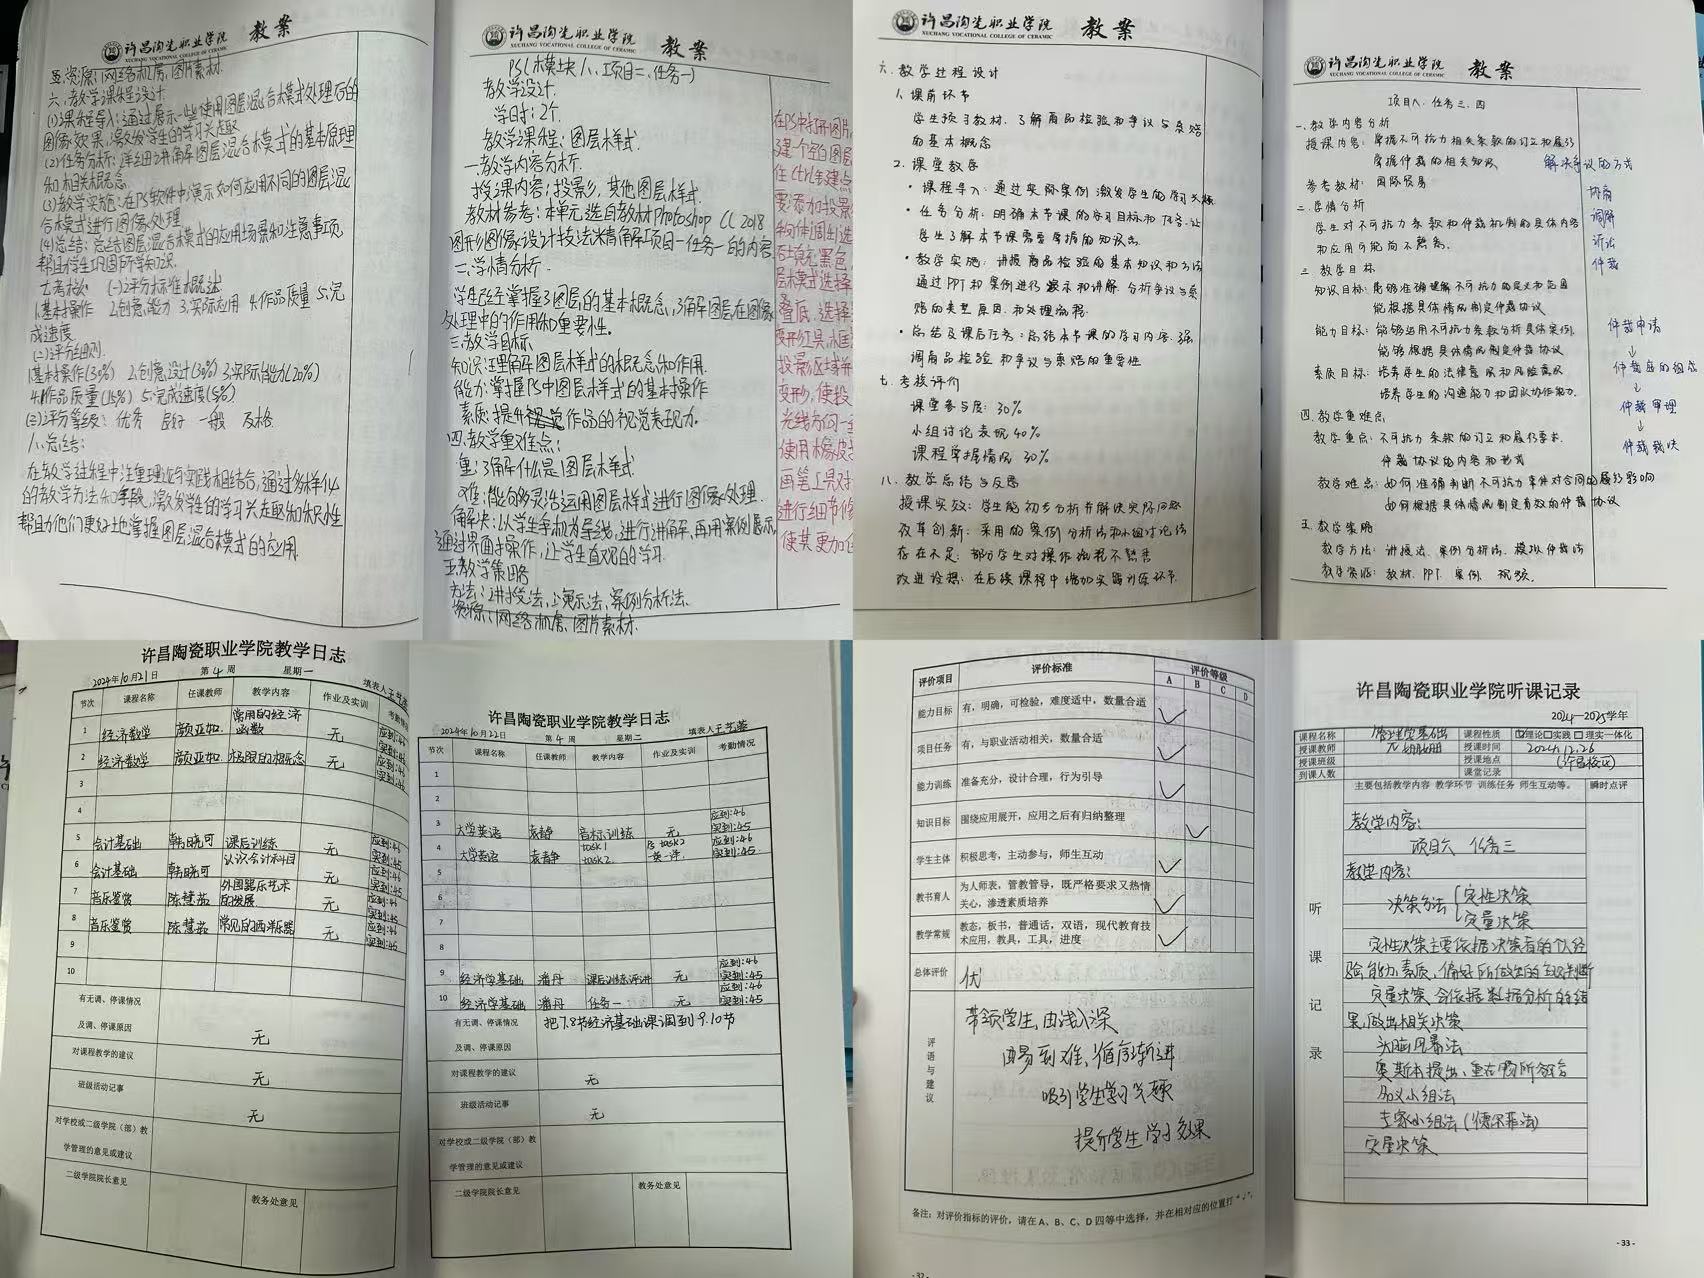 许昌陶瓷职业学院 教案
五.资源:网络机房、图片素材.
六、教学课程设计
(1)课程导入:通过展示一些使用图层混合模式处理后的
图像效果,激发学生的学习兴趣
(2)任务分析:详细讲解图层混合模式的基本原理
和相关概念
(3)教学实施:在PS软件中演示如何应用不同的图层混
合模式进行图像处理
(4)总结:总结图层混合模式的应用场景和注意事项,
帮助学生巩固所学知识.
七.考核 (一)评分标准概述
1.基本操作 2.创意能力 3.实际应用 4.作品质量 5.完
成速度
(二)评分细则.
1.基本操作(30%) 2.创意设计(30%) 3.实际能力(20%)
4.作品质量(15%) 5.完成速度(5%)
(三)评分等级: 优秀 良好 一般 及格
八.总结:
在教学过程中注重理论与实践相结合,通过多样化
的教学方法和手段,激发学生的学习兴趣和积极性
帮助他们更好地掌握图层混合模式的应用.
许昌陶瓷职业学院 教案
XUCHANG VOCATIONAL COLLEGE OF CERAMIC
PS(模块八、项目二、任务一)
教学设计.
学时:2个.
教学课程:图层样式.
一.教学内容分析.
授课内容:投影,其他图层样式.
教材参考:本单元选自教材Photoshop CC 2018
图形图像设计技法精解项目一任务一的内容
二.学情分析.
学生已经掌握了图层的基本概念,了解图层在图像
处理中的作用和重要性.
三.教学目标
知识:理解图层样式的概念和作用.
能力:掌握PS中图层样式的基本操作
素质:提升作品的视觉表现力.
四.教学重难点:
重:了解什么是图层样式.
难:能够灵活运用图层样式进行图像处理.
解决:以学生手机为导线,进行讲解,再用案例展示
通过界面操作,让学生直观的学习.
五.教学策略
方法:讲授法,演示法,案例分析法.
资源:网络机房、图片素材.
在PS中打开图片
建一个空白图层
住Ctrl键建点
要添加投影
物体调出选
后填充黑色
层模式选择
叠底.选择
变形工具,框
投影区域并
变形,使投
光线方向一
使用橡皮
画笔工具对
进行细节修
使其更加自
许昌陶瓷职业学院 教案
XUCHANG VOCATIONAL COLLEGE OF CERAMIC
六.教学过程设计
1.课前环节
学生预习教材.了解商品检验和争议与索赔
的基本概念
2.课堂教学
• 课程导入:通过实际案例激发学生的学习兴趣
• 任务分析:明确本节课的学习目标和任务.让
学生了解本节课需要掌握的知识点
• 教学实施:讲授商品检验的基本知识和方法
通过PPT和案例进行展示和讲解.分析争议与索
赔的类型.原因.和处理流程.
• 总结及课后任务:总结本节课的学习内容.强
调商品检验和争议与索赔的重要性
七.考核评价
课堂参与度:30%
小组讨论表现40%
课程掌握情况30%
八.教学总结与反思
授课实效:学生能初步分析并解决实际问题
改革创新:采用的案例分析法和小组讨论法
存在不足:部分学生对操作流程不熟悉
改进设想:在后续课程中增加实践训练环节.
许昌陶瓷职业学院 教案
XUCHANG VOCATIONAL COLLEGE OF CERAMIC
项目八.任务三.四
一.教学内容分析
授课内容:掌握不可抗力相关条款的订立和履行
掌握仲裁的相关知识
参考教材:国际贸易
二.学情分析
学生对不可抗力条款和仲裁机制的具体内容
和应用可能尚不熟悉.
三.教学目标
知识目标:能够准确理解不可抗力的定义和范围
能根据具体情况制定仲裁协议
能力目标:能够运用不可抗力条款分析具体案例.
能够根据具体情况制定仲裁协议
素质目标:培养学生的法律意识和风险意识
培养学生的沟通能力和团队协作能力.
四.教学重难点
教学重点:不可抗力条款的订立和履行要求.
仲裁协议的内容和形式
教学难点:如何准确判断不可抗力事件对合同的履行影响
如何根据具体情况制定有效的仲裁协议
五.教学策略
教学方法:讲授法.案例分析法.模拟仲裁法
教学资源:教材.PPT.案例.视频.
解决争议的方式
协商
调解
诉讼
仲裁
仲裁申请
↓
仲裁庭的组成
↓
仲裁审理
↓
仲裁裁决
许昌陶瓷职业学院教学日志
2024年10月21日 第4周 星期一 填表人
节次 课程名称 任课教师 教学内容 作业及实训 考勤情
1 经济数学 颜亚如 常用的经济函数 无 应到:46 实到:45
2 经济数学 颜亚如 极限的概念 无 应到:46 实到:45
3
4
5 会计基础 韩晓可 课后训练 无 应到:46 实到:45
6 会计基础 韩晓可 认识会计科目 无 应到:46 实到:45
7 音乐鉴赏 陈慧茹 外国器乐艺术的发展 无 应到:46 实到:45
8 音乐鉴赏 陈慧茹 常见的西洋乐器 无 应到:46 实到:45
9
10
有无调、停课情况
及调、停课原因 无
对课程教学的建议 无
班级活动记事 无
对学校或二级学院(部)教
学管理的意见或建议
二级学院院长意见 教务处意见
许昌陶瓷职业学院教学日志
2024年10月22日 第4周 星期二 填表人
节次 课程名称 任课教师 教学内容 作业及实训 考勤情况
1
2
3 大学英语 袁静 音标训练 无 应到:46 实到:45
4 大学英语 袁静 task1 task2 应到:46 实到:45
5
6
7
8
9 经济学基础 潘丹 课后训练评讲 无 应到:46 实到:45
10 经济学基础 潘丹 任务一 无 应到:46 实到:45
有无调、停课情况 把7.8节经济基础课调到9.10节
及调、停课原因
对课程教学的建议 无
班级活动记事 无
对学校或二级学院(部)教
学管理的意见或建议
二级学院院长意见 教务处意见
评价项目 评价标准 评价等级
A B C D
能力目标 有,明确,可检验,难度适中,数量合适 ✓
项目任务 有,与职业活动相关,数量合适 ✓
能力训练 准备充分,设计合理,行为引导 ✓
知识目标 围绕应用展开,应用之后有归纳整理 ✓
学生主体 积极思考,主动参与,师生互动 ✓
教书育人 为人师表,管教管导,既严格要求又热情
关心,渗透素质培养 ✓
教学常规 教态,板书,普通话,双语,现代教育技
术应用,教具,工具,进度 ✓
总体评价 优
评语与建议
带领学生,由浅入深
由易到难,循序渐进
吸引学生学习兴趣
提升学生学习效果
备注:对评价指标的评价,请在A、B、C、D四等中选择,并在相对应的位置打“✓”.
- 32 -
许昌陶瓷职业学院听课记录
2024—2025学年
课程名称 管理学基础 课程性质 ☑理论□实践□理实一体化
授课教师 授课时间 2024.12.26
授课班级 授课地点 (许昌校区)
到课人数 课堂记录
主要包括教学内容 教学环节 训练任务 师生互动等。 瞬时点评
听课记录
教学内容:
项目六 任务三
教学内容:
决策方法 { 定性决策
定量决策
定性决策主要依据决策者的个人经
验能力素质、偏好所做出的主观判断
定量决策 会依据数据分析的结
果,做出相关决策
头脑风暴法
奥斯本提出、重在畅所欲言
名义小组法
专家小组法(德尔菲法)
定量决策
- 33 -